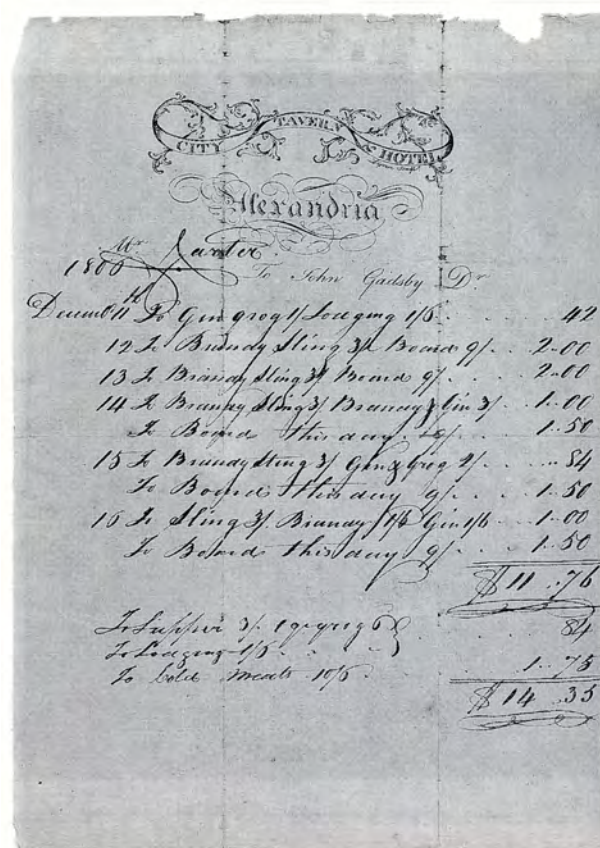 CITY TAVERN & HOTEL
Alexandria
Mr Carter.
1800 To John Gadsby Dr
Decemb 11th To Gin grog 1/ Lodging 1/6 42
12 To Brandy Sling 3/ Board 9/ 2..00
13 To Brandy Sling 3/ Board 9/ 2..00
14 To Brandy Sling 3/ Brandy & Gin 3/ 1..00
To Board this day 9/ 1..50
15 To Brandy Sling 3/ Gin & Grog 2/ 84
To Board this day 9/ 1..50
16 To Sling 3/ Brandy 1/6 Gin 1/6 1..00
To Board this day 9/ 1..50
$ 11..76
To Supper 3/ 84
To Lodging 1/6
To Cold meats 10/6 1..75
$ 14..35